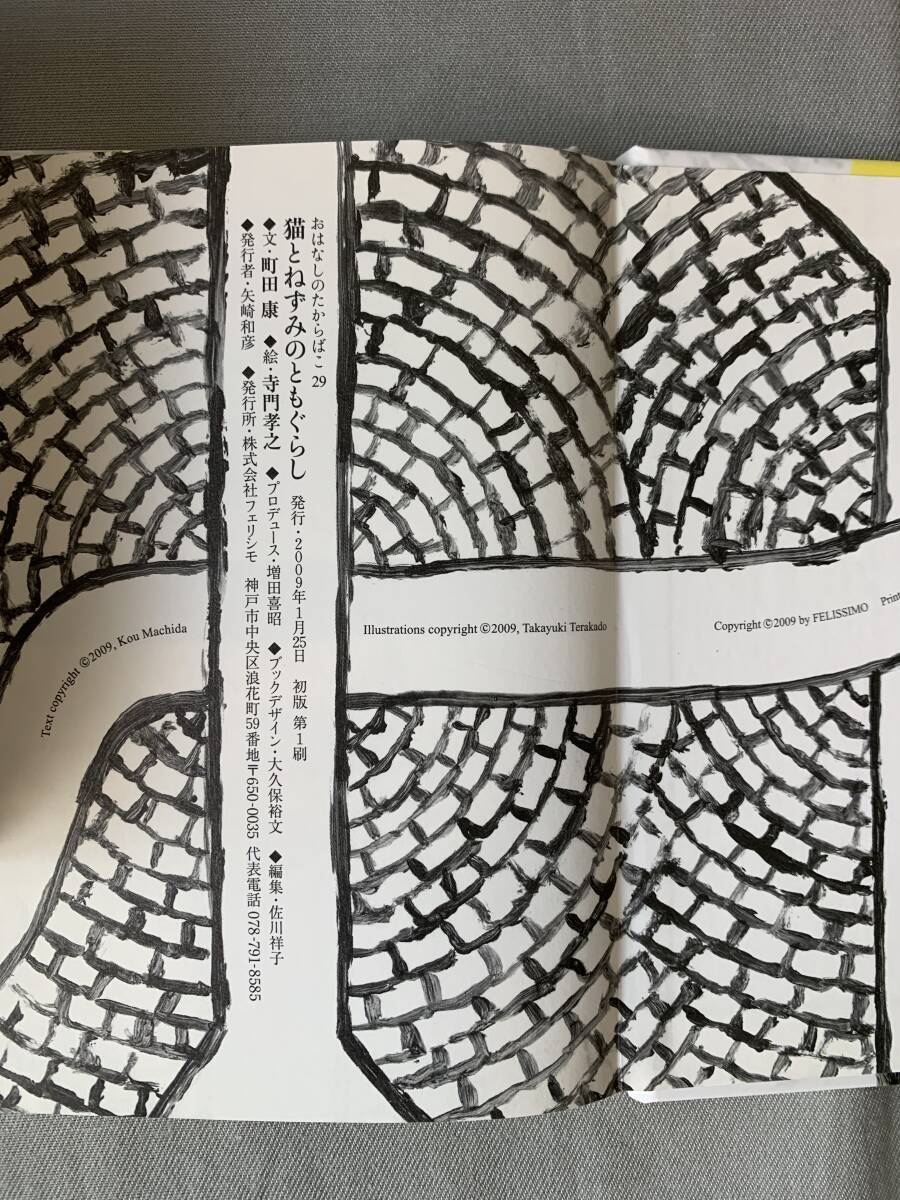 おはなしのたからばこ 29
猫とねずみのともぐらし 発行・2009年1月25日 初版 第1刷
◆文・町田 康 ◆絵・寺門孝之 ◆プロデュース・増田喜昭 ◆ブックデザイン・大久保裕文 ◆編集・佐川祥子
◆発行者・矢崎和彦 ◆発行所・株式会社フェリシモ 神戸市中央区浪花町59番地〒650-0035 代表電話 078-791-8585
Text copyright ©2009, Kou Machida
Illustrations copyright ©2009, Takayuki Terakado
Copyright ©2009 by FELISSIMO Print